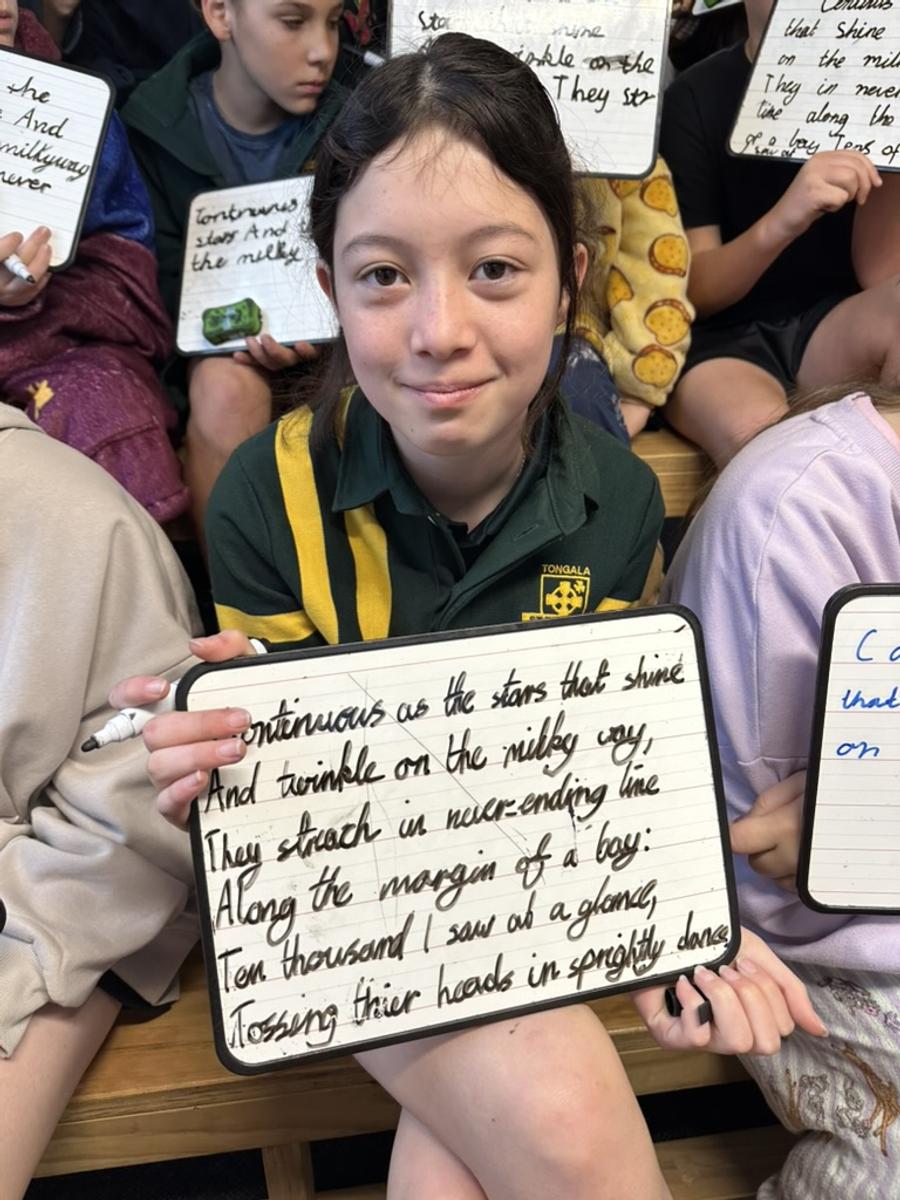 the
And
milkyway
never
Continuous
stars And
the milky
shine
twinkle on the
They str
Continuous
that shine
on the milk
They in never
line along the
of a bay Tens of
TONGALA
ontinuous as the stars that shine
And twinkle on the milky way,
They streach in never-ending line
Along the margin of a bay:
Ten thousand I saw at a glance,
Tossing thier heads in sprightly dance
that
on